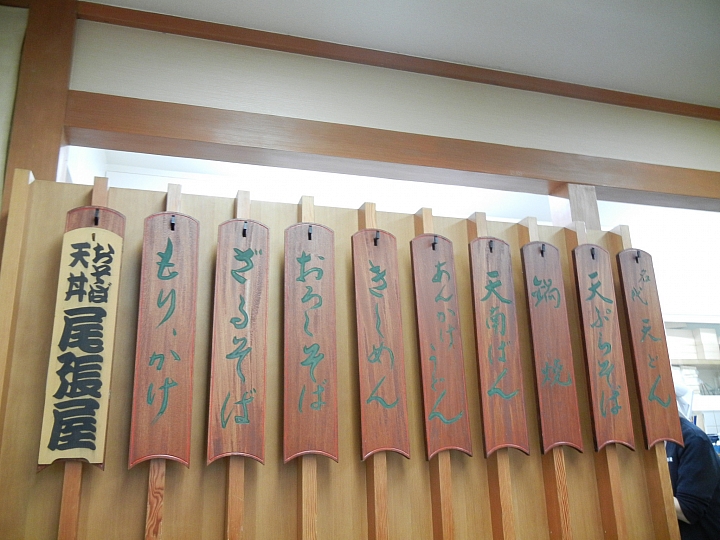 名代 天どん
天ぷらそば
鍋焼
天南ばん
あんかけうどん
きしめん
おろしそば
ざるそば
もり、かけ
おそば
天丼
尾張屋